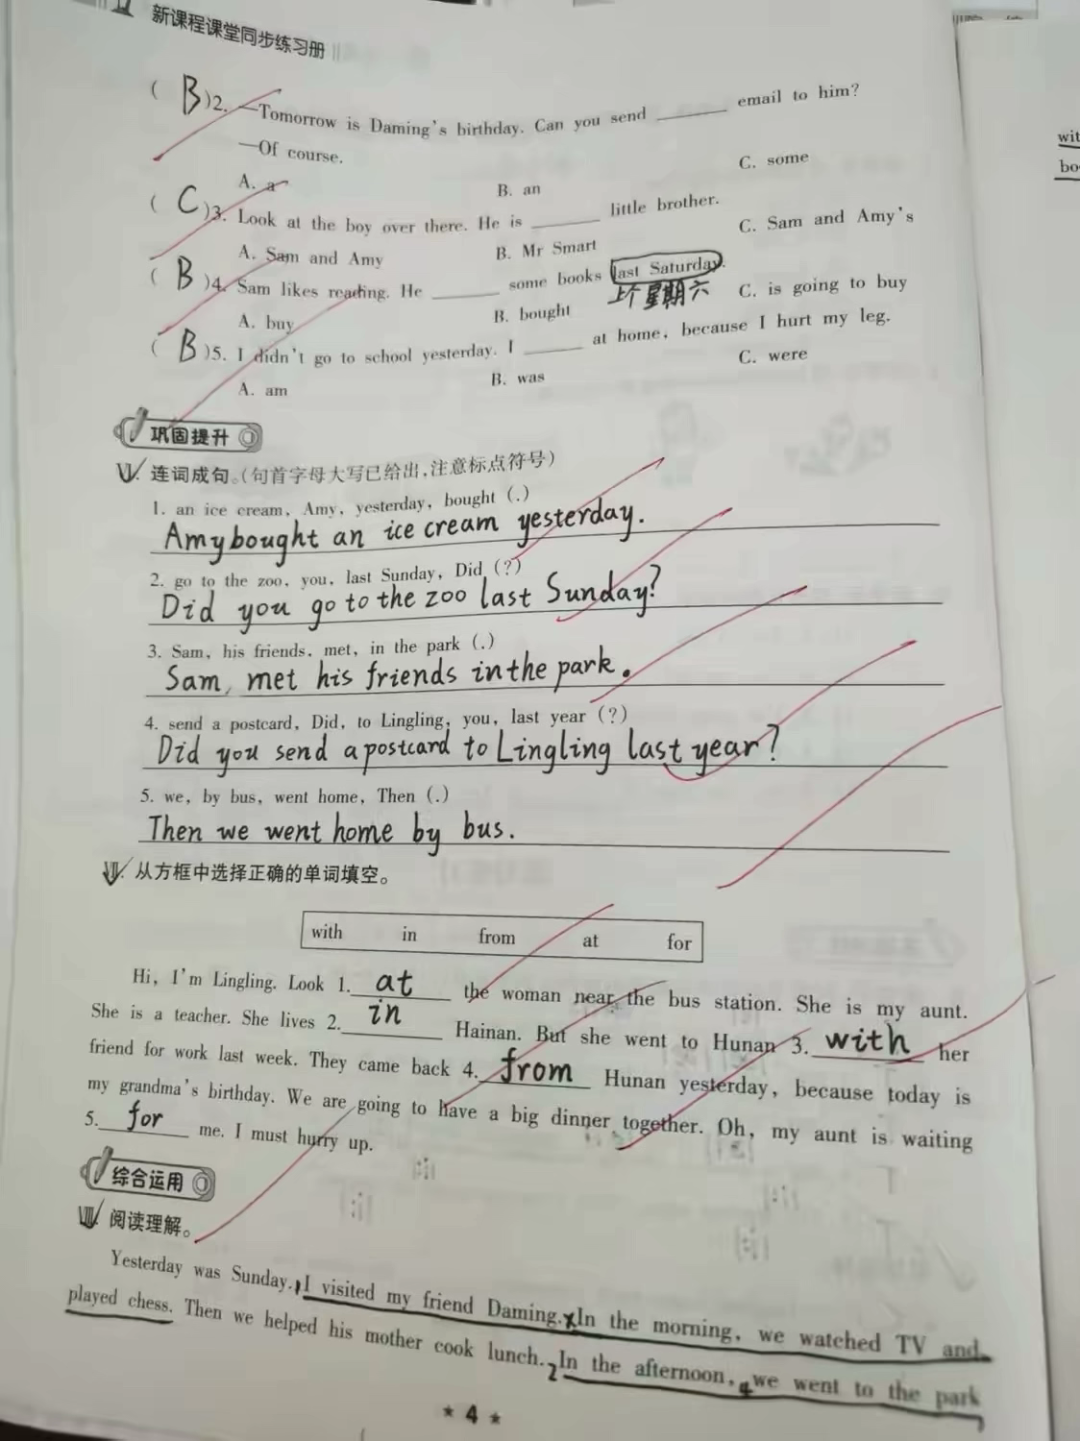 新课程课堂同步练习册
( B )2. —Tomorrow is Daming's birthday. Can you send ______ email to him?
—Of course.
A. a B. an C. some
( C )3. Look at the boy over there. He is ______ little brother.
A. Sam and Amy B. Mr Smart C. Sam and Amy's
( B )4. Sam likes reading. He ______ some books last Saturday.
上个星期六
A. buy B. bought C. is going to buy
( B )5. I didn't go to school yesterday. I ______ at home, because I hurt my leg.
A. am B. was C. were
巩固提升
Ⅵ. 连词成句。(句首字母大写已给出,注意标点符号)
1. an ice cream, Amy, yesterday, bought (.)
Amy bought an ice cream yesterday.
2. go to the zoo, you, last Sunday, Did (?)
Did you go to the zoo last Sunday?
3. Sam, his friends, met, in the park (.)
Sam, met his friends in the park.
4. send a postcard, Did, to Lingling, you, last year (?)
Did you send a postcard to Lingling last year?
5. we, by bus, went home, Then (.)
Then we went home by bus.
Ⅶ. 从方框中选择正确的单词填空。
with in from at for
Hi, I'm Lingling. Look 1. at the woman near the bus station. She is my aunt.
She is a teacher. She lives 2. in Hainan. But she went to Hunan 3. with her
friend for work last week. They came back 4. from Hunan yesterday, because today is
my grandma's birthday. We are going to have a big dinner together. Oh, my aunt is waiting
5. for me. I must hurry up.
综合运用
Ⅷ. 阅读理解。
Yesterday was Sunday. 1 I visited my friend Daming. In the morning, we watched TV and
played chess. Then we helped his mother cook lunch. 2 In the afternoon, 4 we went to the park
★ 4 ★
wit
bo